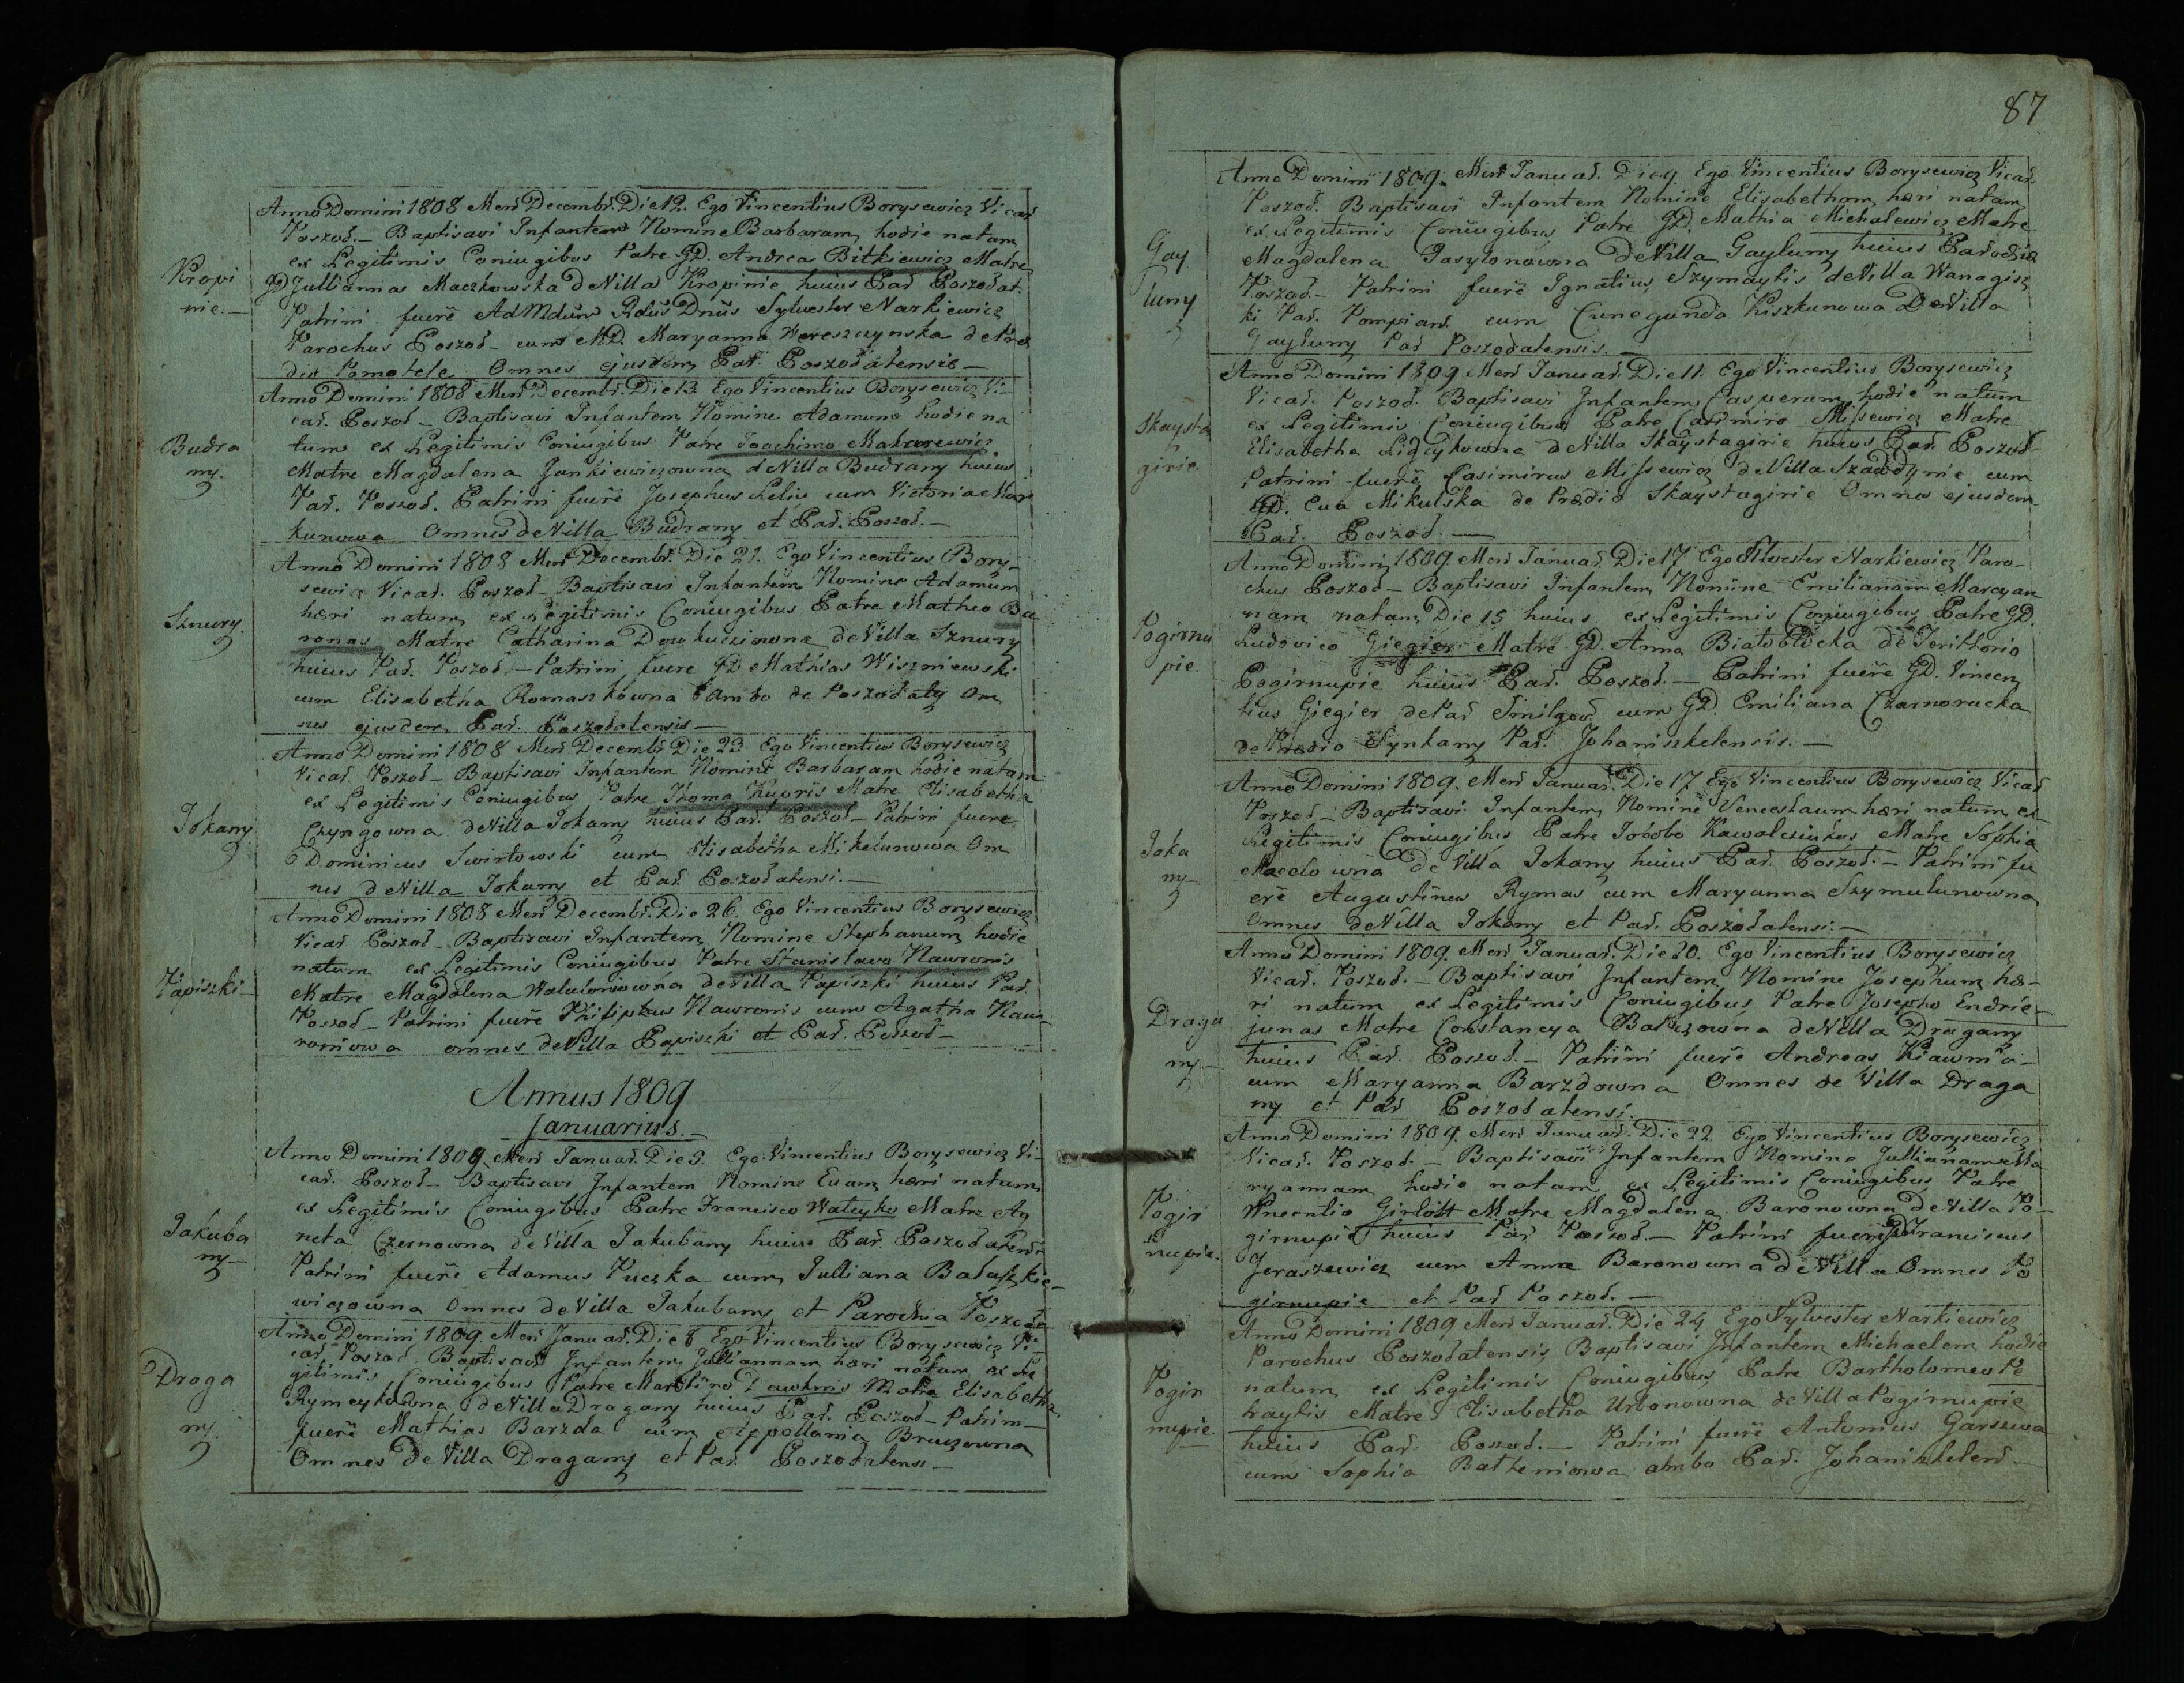 Kropi
nie.—
Anno Domini 1808 Mens Decembr. Die 12. Ego Vincentius Borysewicz Vicar.
Poszod.— Baptisavi Infantem Nomine Barbaram, hodie natam
ex Legitimis Coniugibus Patre GD. Andrea Bitkiewicz Matre
GD Jullianna Maczkowska de Villa Kropinie huius Par Poszodat.
Patrini fuere AdMdum Rdus Dnus Sylvester Narkiewicz
Parochus Poszod— cum MD. Maryanna Wereszczynska de Præ
dio Pamotele Omnes ejusdem Par. Poszodatensis—
Budra
ny.
Anno Domini 1808 Mens Decembr. Die 13. Ego Vincentius Borysewicz Vi-
car. Poszod— Baptisavi Infantem Nomine Adamum hodie na
tum ex Legitimis Coniugibus Patre Joachimo Makarewicz
Matre Magdalena Jankiewiczowna de Villa Budrany huius
Par. Poszod. Patrini fuere Josephus Lelis cum Victoria
kunowa Omnes de Villa Budrany et Par. Poszod.—
Sznury.
Anno Domini 1808 Mens Decembr. Die 21. Ego Vincentius Bory-
sewicz Vicar. Poszod— Baptisavi Infantem Nomine Adamum
hæri natum ex Legitimis Coniugibus Patre Matheo Ba
ronas Matre Catharina de Villa Sznury
huius Par. Poszod,— Patrini fuere GD Mathias Wiszniewski
cum Elisabetha Romaszkowna Ambo de Poszodaty Om
nes ejusdem Par. Poszodatensis—
Jokany
Anno Domini 1808 Mens Decembr Die 23 Ego Vincentius Borysewicz
Vicar. Poszod— Baptisavi Infantem Nomine Barbaram hodie natam
ex Legitimis Coniugibus Patre Thoma Kupris Matre Elisabetha
Czyngowna de Villa Jokany huius Par. Poszod— Patrini fuere
Dominicus Swirtowski cum Elisabetha Mikelunowa Om
nes de Villa Jokany et Par. Poszodatensi.—
Papiszki—
Anno Domini 1808 Mens Decembr. Die 26. Ego Vincentius Borysewicz
Vicar Poszod— Baptisavi Infantem Nomine Stephanum hodie
natum ex Legitimis Coniugibus Patre Stanislavo Nawronis
Matre Magdalena de Villa Papiszki huius Par.
Poszod— Patrini fuere Philippus Nawronis cum Agatha Naw
roniowa omnes de Villa Papiszki et Par. Poszod—
Annus 1809
Januarius.—
Jakuba
ny—
Anno Domini 1809 Mens Januar. Die 3. Ego Vincentius Borysewicz Vi-
car. Poszod— Baptisavi Infantem Nomine Evam, hæri natam,
ex Legitimis Coniugibus Patre Francisco Watcyko Matre Ag
neta Czernowna de Villa Jakubany huius Par. Poszodatensi
Patrini fuere Adamus Puczka cum Julliana Bałaszkie-
wiczowna Omnes de Villa Jakubany et Parochia Poszoda
Draga
ny.
Anno Domini 1809. Mens Januar. Die 8 Ego Vincentius Borysewicz Vi-
car. Poszod. Baptisavi Infantem, Julliannam hæri natam ex Le
gitimis Coniugibus Patre Martino Matre Elisabetha
Rymcykowna de Villa Dragany huius Par. Poszod— Patrini—
fuere Mathias Barzda cum Appollonia Bruzowna
Omnes de Villa Dragany et Par. Poszodatensi—
87
Gay
luny
Anno Domini 1809. Mens Januar. Die 9. Ego Vincentius Borysewicz Vicar.
Poszod. Baptisavi Infantem Nomine Elisabetham, hæri natam
ex Legitimis Coniugibus Patre GD. Mathia Michalewicz Matre
Magdalena de Villa Gayluny huius Parochiæ
Poszod— Patrini fuere Ignatius Szymaytis de Villa Wanagisz
ki Par. Pompian. cum Cunegunda Piszkunowa De Villa
Gayluny Par Poszodatensis.—
Skaysta
girie
Anno Domini 1809 Mens Januar. Die 11. Ego Vincentius Borysewicz
Vicar. Poszod. Baptisavi Infantem Casperum, hodie natum
ex Legitimis Coniugibus Patre Casimiro Missewicz Matre
Elisabetha de Villa Skaystagirie huius Par. Poszod
Patrini fuere Casimirus Missewicz de Villa cum
GD. Eva Mikulska de Prædio Skaystagirie Omnes ejusdem
Par. Poszod.—
Pogirnu
pie.
Anno Domini 1809. Mens Januar. Die 17 Ego Silvester Narkiewicz Paro-
chus Poszod— Baptisavi Infantem Nomine Emilianam Maryan
nam natam Die 15 huius ex Legitimis Coniugibus Patre GD.
Ludovico Giegier Matre GD. Anna Białobłocka de Territorio
Pogirnupie huius Par. Poszod.— Patrini fuere GD. Vincen
tius Giegier de Par Smilgow. cum GD. Emiliana Czarnorucka
de Prædio Synkany Par. Johaniszkelensis.—
Joka
ny—
Anno Domini 1809. Mens Januar. Die 17 Ego Vincentius Borysewicz Vicar
Poszod— Baptisavi Infantem Nomine Venceslaum hæri natum ex
Legitimis Coniugibus Patre Jobobo Kawalciukas Matre Sophia
Macelowna de Villa Jokany huius Par. Poszod.— Patrini fu
ere Augustinus Rymas cum Maryanna Szymulunowna
Omnes de Villa Jokany et Par. Poszodatensi.—
Draga
ny—
Anno Domini 1809. Mens Januar. Die 20. Ego Vincentius Borysewicz
Vicar. Poszod.— Baptisavi Infantem Nomine Josephum hæ-
ri natum ex Legitimis Coniugibus Patre Josepho Endrie-
junas Matre Constancya de Villa Dragany
huius Par. Poszod.— Patrini fuere Andreas
cum Maryanna Barzdowna Omnes de Villa Draga
ny et Par Poszodatensi.
Pogir
nupie.
Anno Domini 1809. Mens Januar. Die 22 Ego Vincentius Borysewicz
Vicar. Poszod.— Baptisavi Infantem Nomine Jullianam Ma
ryannam hodie natam ex Legitimis Coniugibus Patre
Vincentio Matre Magdalena Baronowna de Villa Po-
girnupie huius Par Poszod.— Patrini fuere GD Franciscus
Jeraszewicz cum Anna Baronowna de Villa Omnes Po
girnupie et Par Poszod.—
Pogir
nupie.
Anno Domini 1809 Mens Januar. Die 24 Ego Sylvester Narkiewicz
Parochus Poszodatensis Baptisavi Infantem Michaelem hodie
natum ex Legitimis Coniugibus Patre Bartholomeo Pe
traytis Matre Elisabetha Urbonowna de Villa Pogirnupie
huius Par. Poszod.— Patrini fuere Antonius Garsewa
cum Sophia ambo Par. Johaniszkelens—